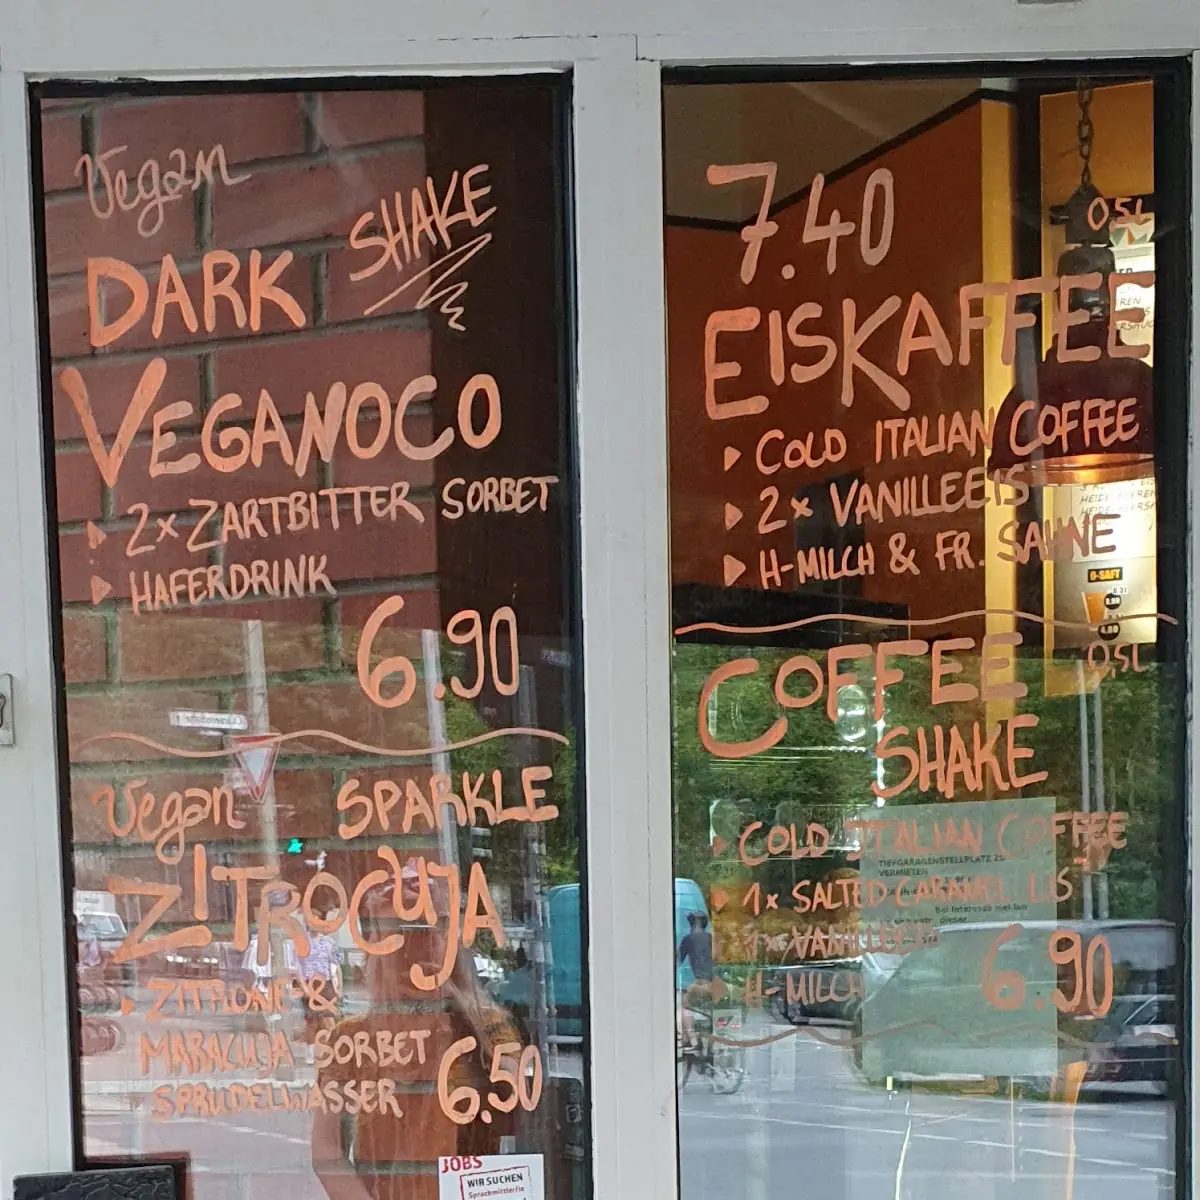 Vegan
DARK SHAKE
VEGANOCO
2x ZARTBITTER SORBET
HAFERDRINK
6.90
Vegan SPARKLE
ZITROCUJA
ZITRONE &
MARACUJA SORBET
SPRUDELWASSER
6.50
JOBS
WIR SUCHEN
Sprachmittler/in
7.40
0,5L
EISKAFFEE
COLD ITALIAN COFFEE
2x VANILLEEIS
H-MILCH & FR. SAHNE
O-SAFT
0,5L
COFFEE
SHAKE
COLD ITALIAN COFFEE
1x SALTED CARAMEL EIS
1x VANILLEEIS
H-MILCH
6.90
TIEFGARAGENSTELLPLATZ ZU
VERMIETEN